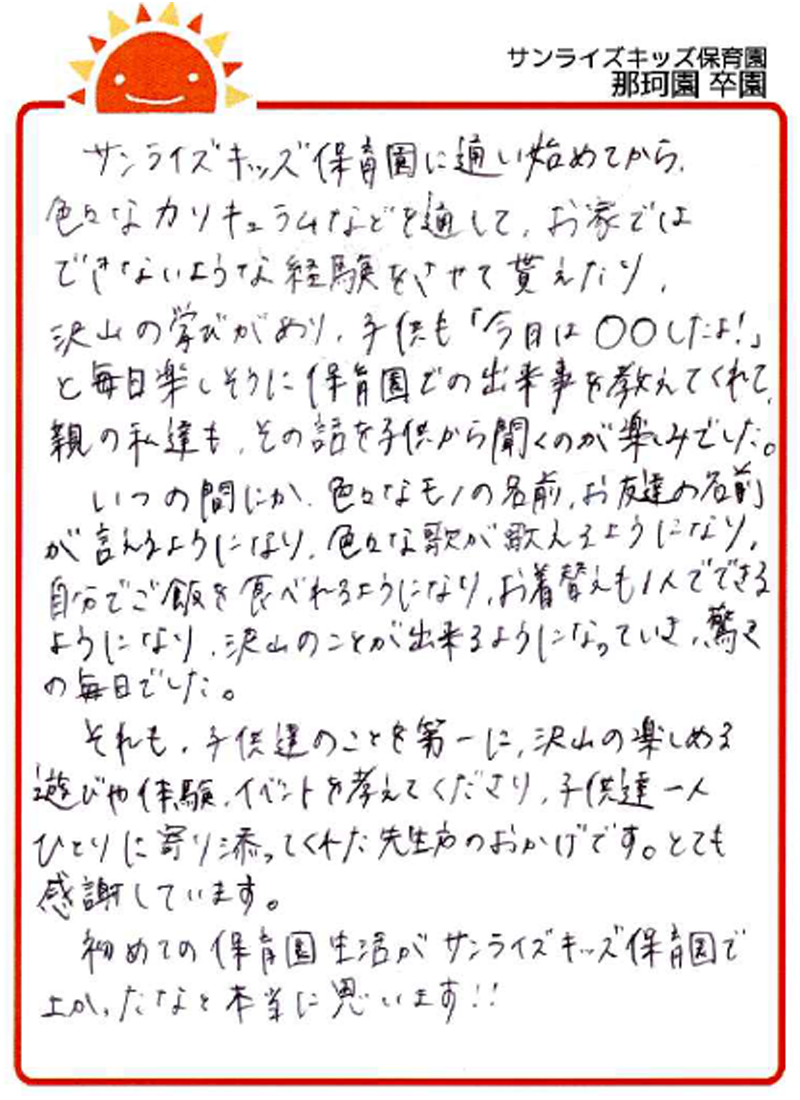 サンライズキッズ保育園
那珂園 卒園
サンライズキッズ保育園に通い始めてから、
色々なカリキュラムなどを通して、お家では
できないような経験をさせて貰えたり、
沢山の学びがあり、子供も「今日は〇〇したよ!」
と毎日楽しそうに保育園での出来事を教えてくれて、
親の私達も、その話を子供から聞くのが楽しみでした。
いつの間にか、色々なモノの名前、お友達の名前
が言えるようになり、色々な歌が歌えるようになり、
自分でご飯を食べれるようになり、お着替えも1人でできる
ようになり、沢山のことが出来るようになっていき、驚き
の毎日でした。
それも、子供達のことを第一に、沢山の楽しめる
遊びや体験、イベントを考えてくださり、子供達一人
ひとりに寄り添ってくれた先生方のおかげです。とても
感謝しています。
初めての保育園生活がサンライズキッズ保育園で
よかったなと本当に思います!!